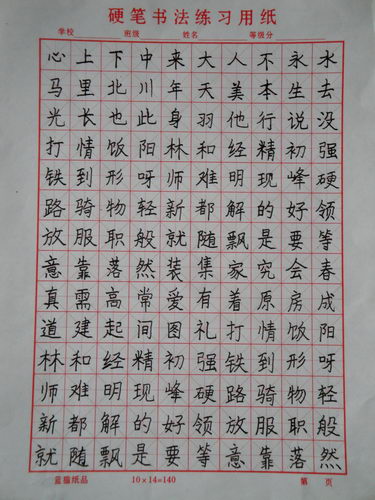 硬笔书法练习用纸
学校 班级 姓名 等级分
心上下中来大人不永水
马里北川年天美本生去
光长也此身羽他行说没
打情饭阳林和经精初强
铁到形呀师难明现峰硬
路骑物轻新都解的好领
放服职般就随飘是要等
意靠落然装集家究会春
真需高常爱有着原房成
道建起间图礼打情饭阳
林和经精初强铁到形呀
师难明现峰硬路骑物轻
新都解的好领放服职般
就随飘是要等意靠落然
蓝猫纸品 10×14=140 第 页